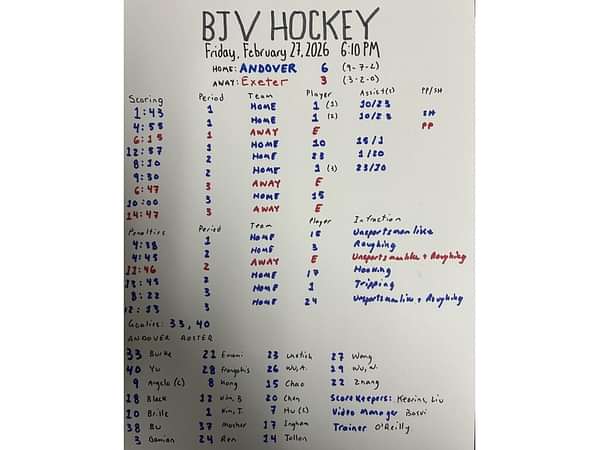 BJV HOCKEY
Friday, February 27, 2026 6:10 PM
HOME: ANDOVER 6 (9-7-2)
AWAY: Exeter 3 (3-2-0)
Scoring Period Team Player Assist(s) PP/SH
1:43 1 HOME 1 (1) 10/23
4:55 1 HOME 1 (2) 10/23 SH
6:15 1 AWAY E PP
12:57 1 HOME 10 15/1
8:10 2 HOME 23 1/20
9:30 2 HOME 1 (3) 23/20
6:47 3 AWAY E
10:00 3 HOME 15
14:47 3 AWAY E
Penalties Period Team Player Infraction
4:38 1 HOME 15 Unsportsmanlike
4:45 2 HOME 3 Roughing
11:46 2 AWAY E Unsportsmanlike + Roughing
13:45 2 HOME 17 Hooking
8:22 3 HOME 1 Tripping
12:33 3 HOME 24 Unsportsmanlike + Roughing
Goalies: 33, 40
ANDOVER ROSTER
33 Burke 21 Emami 23 27 Wang
40 Yu 28 26 Wu, A. 29 Wu, N.
9 Angelo (C) 8 Kong 15 Chao 22 Zhang
18 Black 12 Kim, B 20 Chen Scorekeepers: Kearins, Liu
10 Brille 1 Kim, T. 7 Hu (C) Video Manager
38 Bu 37 Mosher 17 Ingham Trainer O'Reilly
3 Damian 24 Ren 14 Tollen